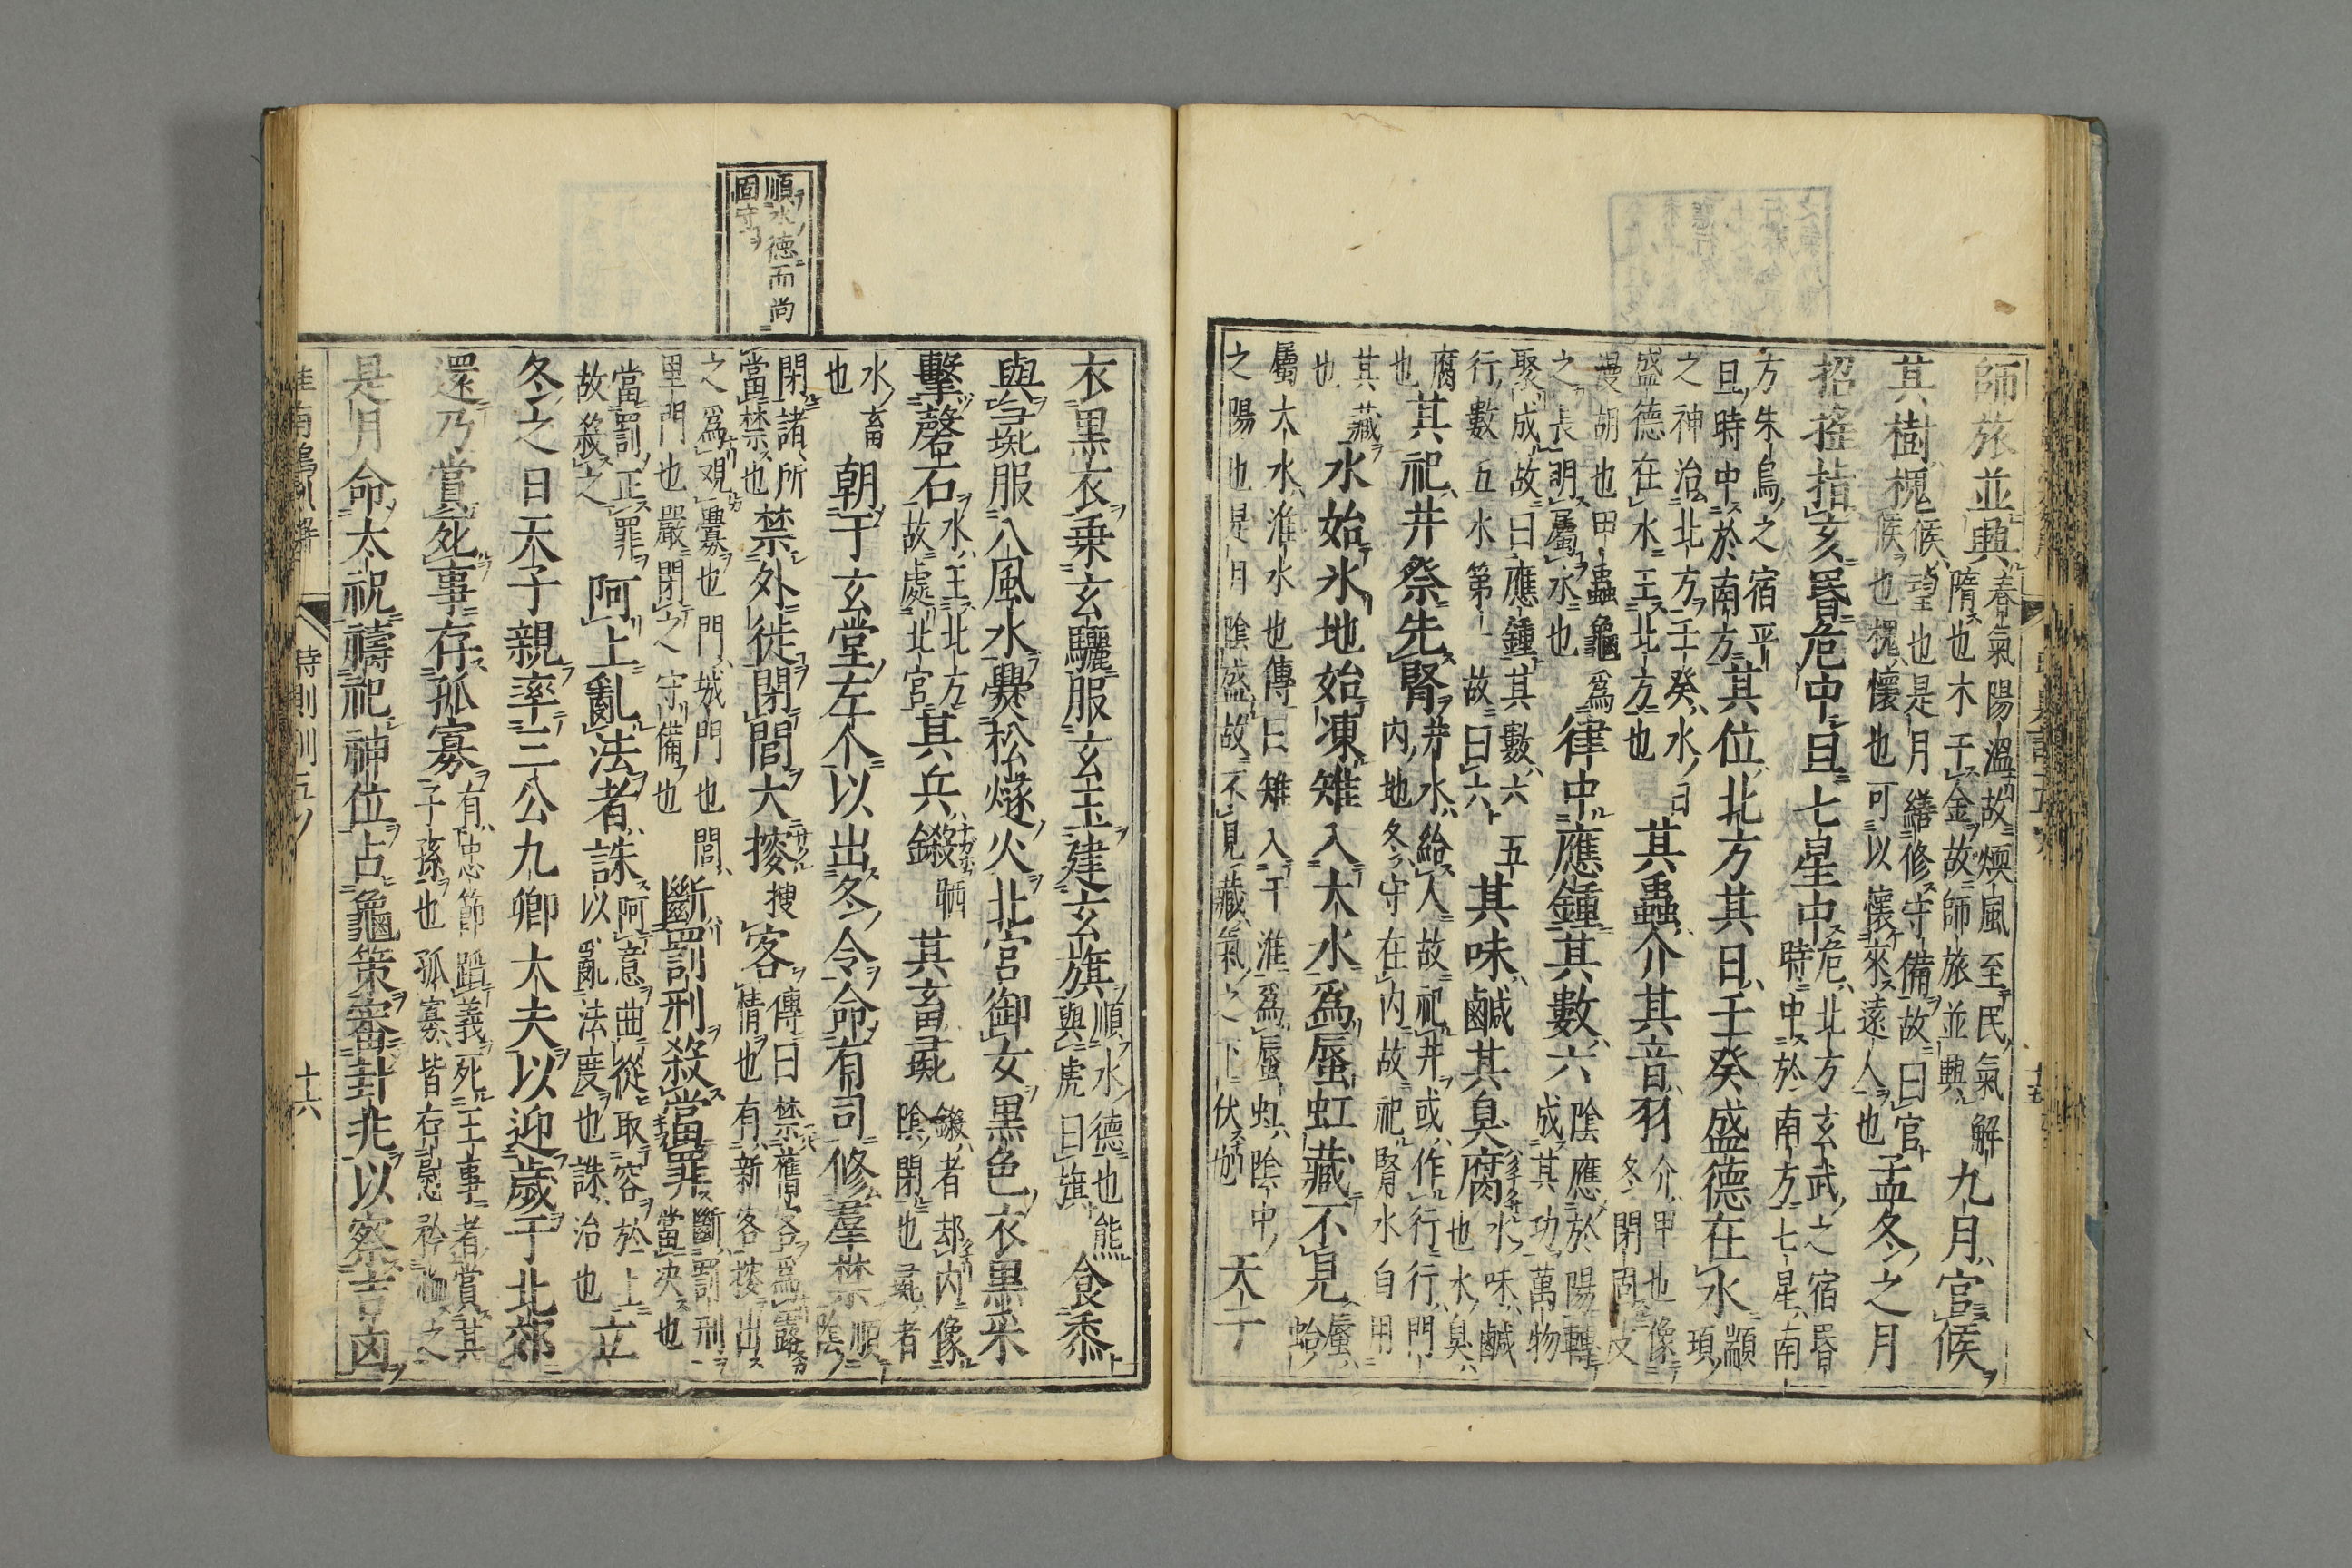 師旅並興春氣陽溫故煗風至民氣解
隋也木干金故師旅並興九月官候
其樹槐候望也是月繕修守備故曰官
候也槐懷也可以懷來遠人也孟冬之月
招搖指亥昏危中旦七星中危北方玄武之宿昏
時中於南方七星南
方朱鳥之宿平
旦時中於南方其位北方其日壬癸盛德在水顓
頊
之神治北方壬癸水日
盛德在水王北方也其蟲介其音羽介甲也像
冬閉固皮
漫胡也甲蟲龜爲
之長明屬水也律中應鐘其數六陰應於陽轉
成其功萬物
聚成故曰應鐘其數六五
行數五水第一故曰六其味鹹其臭腐水味鹹
也水臭
腐
也其祀井祭先腎井水給人故祀井或作行行門
內地冬守在內故祀腎水自用
其藏
也水始冰地始凍雉入大水爲蜃虹藏不見蜃
蛤
屬大水淮水也傳曰雉入于淮爲蜃虹陰中
之陽也是月陰盛故不見藏氣之下伏也天子
衣黑衣乗玄驪服玄玉建玄旗順水德也熊
與虎曰旗食黍
與彘服八風水爨松燧火北宮御女黑色衣黑采
擊磬石水王北方
故處北宮其兵鎩其畜彘鎩者却內像
陰閉也彘者
水畜
也朝于玄堂左个以出冬令命有司修羣禁順
陰
閉諸所
當禁也禁外徙閉閭大搜客傳曰禁舊客爲露
情也有新客搜出
之爲觀釁也門城門也閭
里門也嚴閉之守備也斷罰刑殺當罪斷罰刑
當决也
當罰正罪
故殺之阿上亂法者誅阿意曲從取容於上
以亂法度也誅治也立
冬之日天子親率三公九卿大夫以迎歲于北郊
還乃賞死事存孤寡有忠節蹈義死王事者賞其
子孫也孤寡皆存慰矜恤之
是月命太祝禱祀神位占龜策審卦兆以察吉凶
順水德而尚
固守
時則訓五
十六
十五